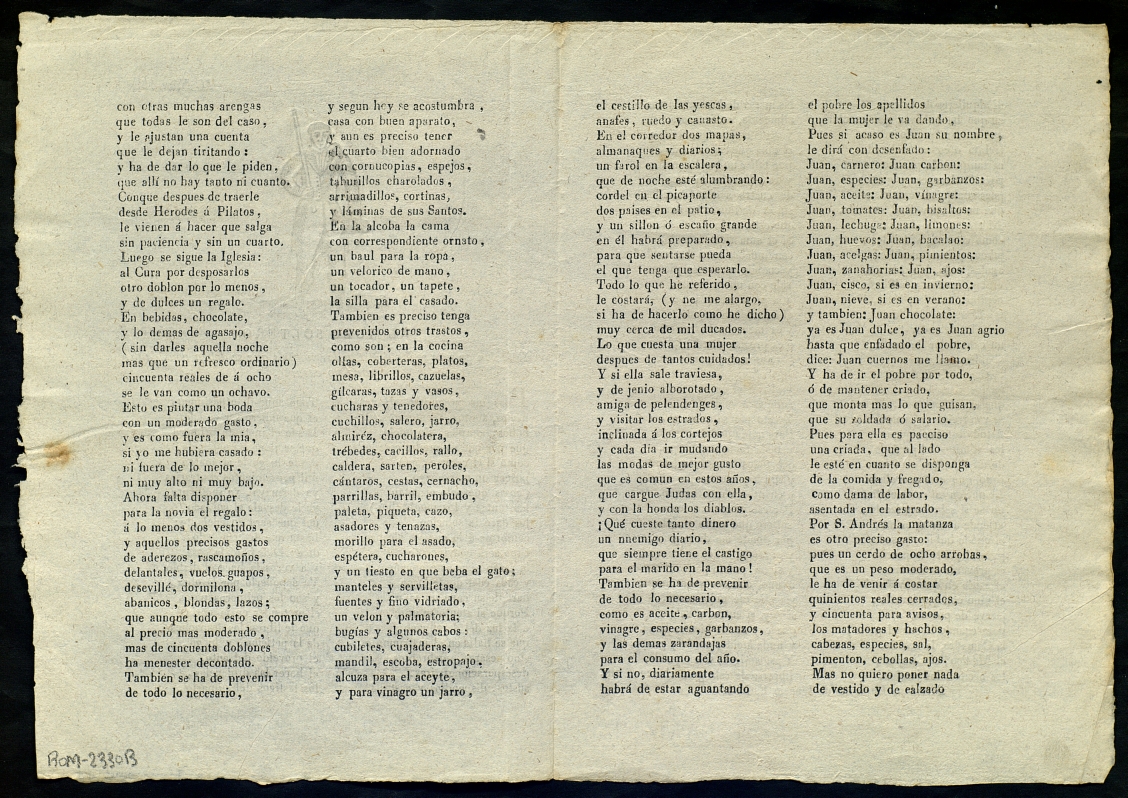 con otras muchas arengas
que todas le son del caso,
y le ajustan una cuenta
que le dejan tiritando:
y ha de dar lo que le piden,
que allí no hay tanto ni cuanto.
Conque despues de traerle
desde Herodes á Pilatos,
le vienen á hacer que salga
sin paciencia y sin un cuarto.
Luego se sigue la Iglesia:
al Cura por desposarlos
otro doblon por lo menos,
y de dulces un regalo.
En bebidas, chocolate,
y lo demas de agasajo,
(sin darles aquella noche
mas que un refresco ordinario)
cincuenta reales de á ocho
se le van como un ochavo.
Esto es pintar una boda
con un moderado gasto,
y es como fuera la mia,
si yo me hubiera casado:
ni fuera de lo mejor,
ni muy alto ni muy bajo.
Ahora falta disponer
para la novia el regalo:
á lo menos dos vestidos,
y aquellos precisos gastos
de aderezos, rascamoños,
delantales, vuelos guapos,
desevillé, dormilona,
abanicos, blondas, lazos;
que aunque todo esto se compre
al precio mas moderado,
mas de cincuenta doblones
ha menester decontado.
Tambien se ha de prevenir
de todo lo necesario,
y segun hoy se acostumbra,
casa con buen aparato,
y aun es preciso tener
el cuarto bien adornado
con cornucopias, espejos,
taburillos charolados,
arrimadillos, cortinas,
y láminas de sus Santos.
En la alcoba la cama
con correspondiente ornato,
un baul para la ropa,
un velorico de mano,
un tocador, un tapete,
la silla para el casado.
Tambien es preciso tenga
prevenidos otros trastos,
como son; en la cocina
ollas, coberteras, platos,
mesa, librillos, cazuelas,
gílcaras, tazas y vasos,
cucharas y tenedores,
cuchillos, salero, jarro,
almiréz, chocolatera,
trébedes, cacillos, rallo,
caldera, sarten, peroles,
cántaros, cestas, cernacho,
parrillas, barril, embudo,
paleta, piqueta, cazo,
asadores y tenazas,
morillo para el asado,
espétera, cucharones,
y un tiesto en que beba el gato;
manteles y servilletas,
fuentes y fino vidriado,
un velon y palmatoria;
bugías y algunos cabos:
cubiletes, cuajaderas,
mandil, escoba, estropajo,
alcuza para el aceyte,
y para vinagro un jarro,
el cestillo de las yescas,
anafes, ruedo y canasto.
En el corredor dos mapas,
almanaques y diarios;
un farol en la escalera,
que de noche esté alumbrando:
cordel en el picaporte
dos paises en el patio,
y un sillon ó escaño grande
en él habrá preparado,
para que sentarse pueda
el que tenga que esperarlo.
Todo lo que he referido,
le costará, (y ne me alargo,
si ha de hacerlo como he dicho)
muy cerca de mil ducados.
Lo que cuesta una mujer
despues de tantos cuidados!
Y si ella sale traviesa,
y de jenio alborotado,
amiga de pelendenges,
y visitar los estrados,
inclinada á los cortejos
y cada dia ir mudando
las modas de mejor gusto
que es comun en estos años,
que cargue Judas con ella,
y con la honda los diablos.
¡Qué cueste tanto dinero
un nnemigo diario,
que siempre tiene el castigo
para el marido en la mano!
Tambien se ha de prevenir
de todo lo necesario,
como es aceite, carbon,
vinagre, especies, garbanzos,
y las demas zarandajas
para el consumo del año.
Y si no, diariamente
habrá de estar aguantando
el pobre los apellidos
que la mujer le va dando,
Pues si acaso es Juan su nombre,
le dirá con desenfado:
Juan, carnero: Juan carbon:
Juan, especies: Juan, garbanzos:
Juan, aceite: Juan, vinagre:
Juan, tomates: Juan, bisaltos:
Juan, lechuga: Juan, limones:
Juan, huevos: Juan, bacalao:
Juan, acelgas: Juan, pimientos:
Juan, zanahorias: Juan, ajos:
Juan, cisco, si es en invierno:
Juan, nieve, si es en verano:
y tambien: Juan chocolate:
ya es Juan dulce, ya es Juan agrio
hasta que enfadado el pobre,
dice: Juan cuernos me llamo.
Y ha de ir el pobre por todo,
ó de mantener criado,
que monta mas lo que guisan,
que su soldada ó salario.
Pues para ella es pacciso
una criada, que al lado
le esté en cuanto se disponga
de la comida y fregado,
como dama de labor,
asentada en el estrado.
Por S. Andrés la matanza
es otro preciso gasto:
pues un cerdo de ocho arrobas,
que es un peso moderado,
le ha de venir á costar
quinientos reales cerrados,
y cincuenta para avisos,
los matadores y hachos,
cabezas, especies, sal,
pimenton, cebollas, ajos.
Mas no quiero poner nada
de vestido y de ealzado
ROM-2330B